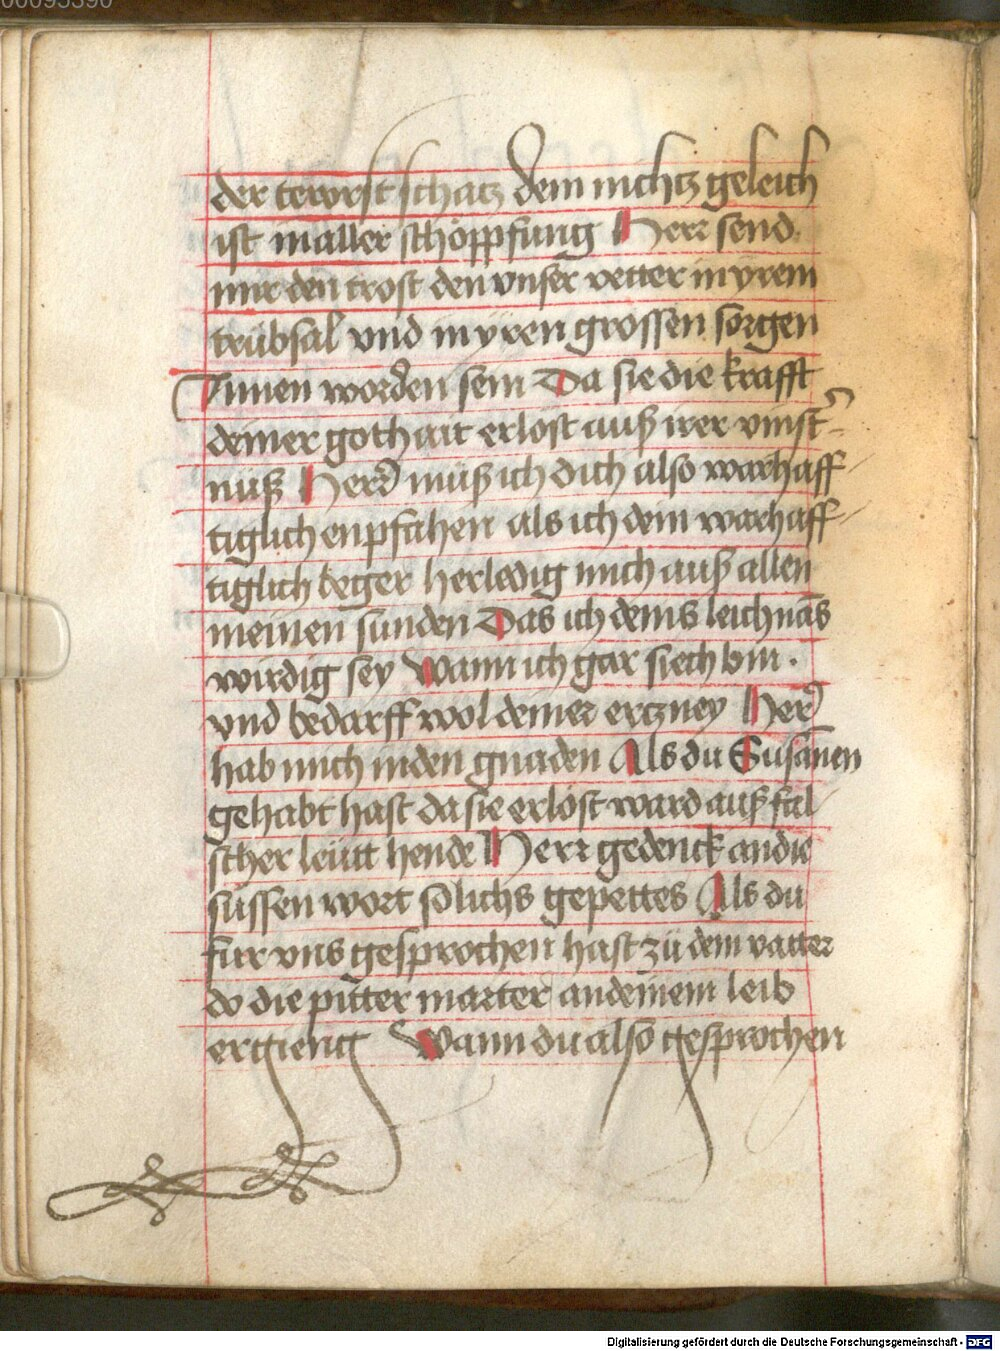 00095390
der tewrst schatz dem nichtz geleich
ist in aller schöppfung Herr send
mir den trost den vnser vetter in yrem
trübsal vnd in yren grossen sorgen
Innen worden sein Da sie die krafft
deiner gothait erlöst auß irer vinst-
nüß Herr müß ich dich also warhaff
tiglich enpfahen als ich dein warhaff
tiglich beger herledig mich auß allen
meinen sünden Das ich deins leichnas
wirdig sey Wann ich gar siech bin .
vnd bedarff wol deiner ertzney Herr
hab mich in den gnaden Als du Susannen
gehabt hast da sie erlöst ward auß fal
scher leütt hende Herr gedenck an die
süssen wort solichs gepettes Als du
für vns gesprochen hast zü dem vatter
do die pitter marter an deinem leib
ergieng Wann du also gesprochen
Digitalisierung gefördert durch die Deutsche Forschungsgemeinschaft - DFG